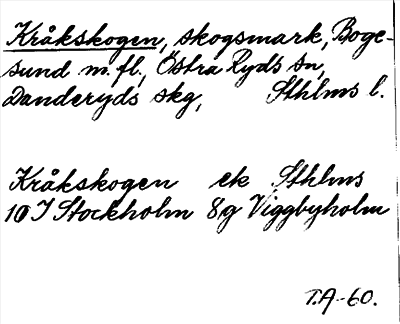 Kråkskogen, skogsmark, Boge-
sund m.fl., Östra Ryds sn,
Danderyds skg, Sthlms l.
Kråkskogen ek Sthlms
10 I Stockholm 8g Viggbyholm
T.A-60.